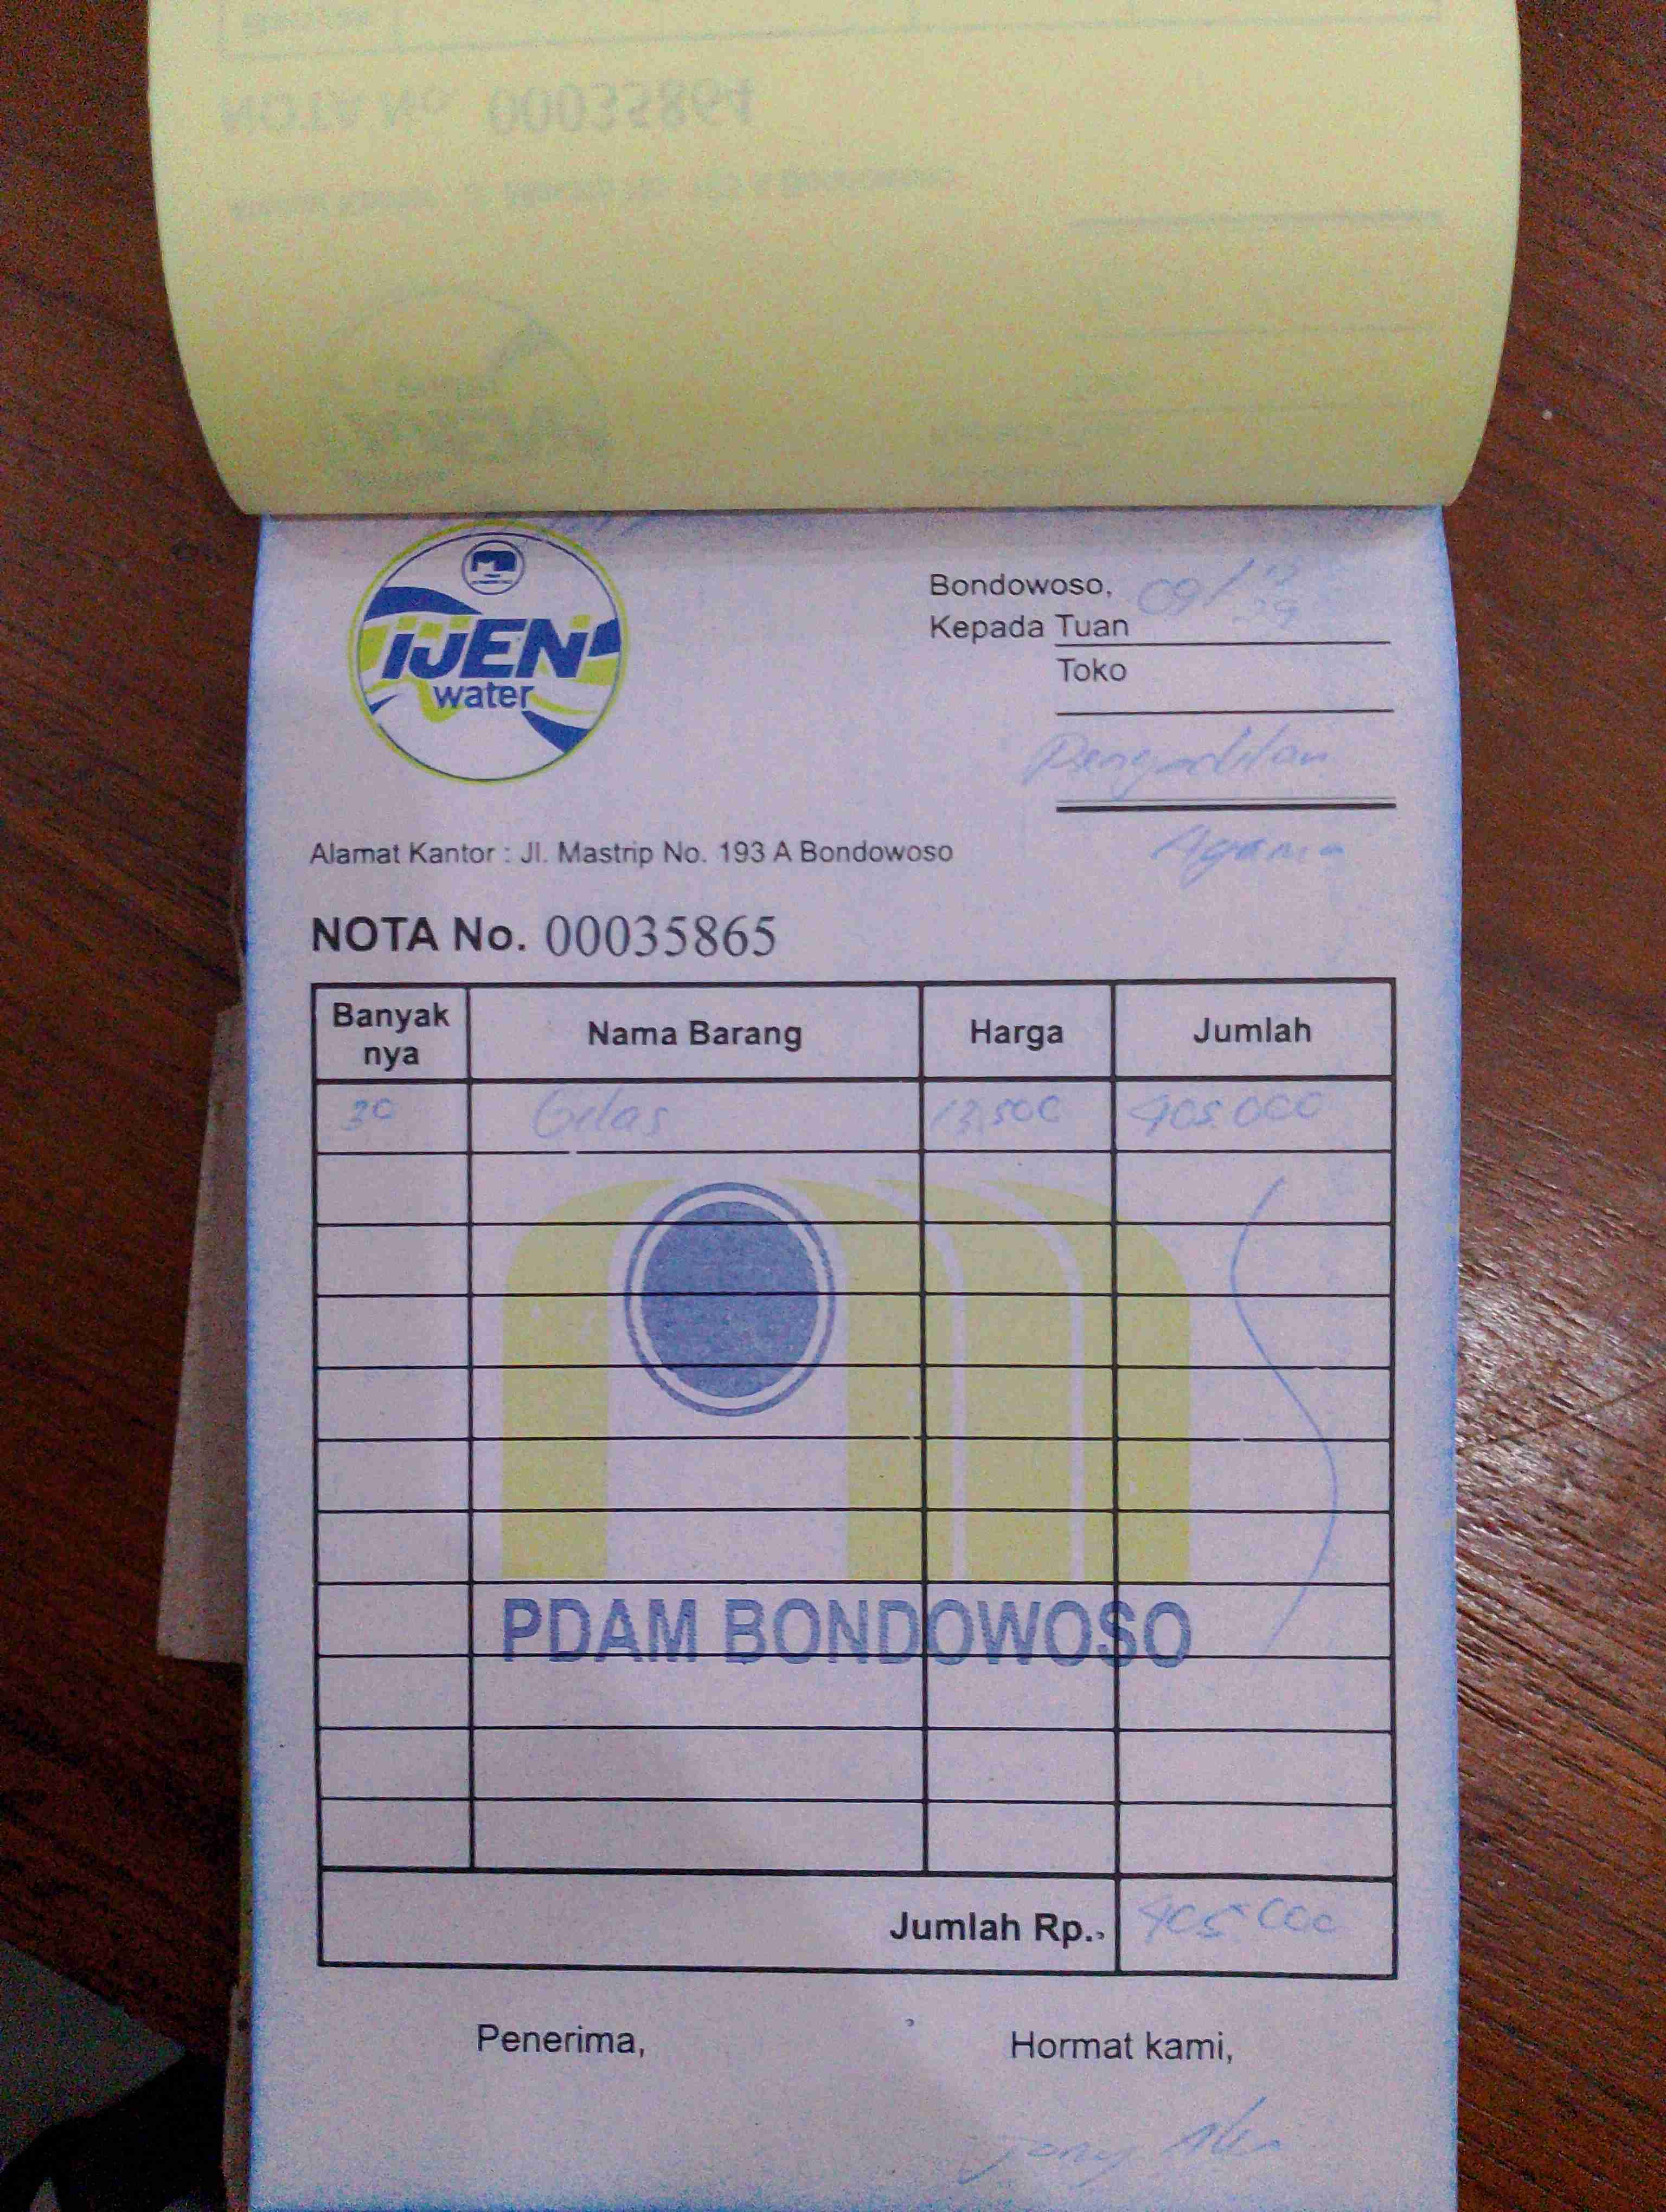 NOTA No. 00035864
IJEN
water
Bondowoso, 09/
Kepada Tuan
Toko
Pengadilan
Agama
Alamat Kantor : Jl. Mastrip No. 193 A Bondowoso
NOTA No. 00035865
Banyak nya Nama Barang Harga Jumlah
30 Gelas 13.500 405.000
PDAM BONDOWOSO
Jumlah Rp. 405.000
Penerima, Hormat kami,